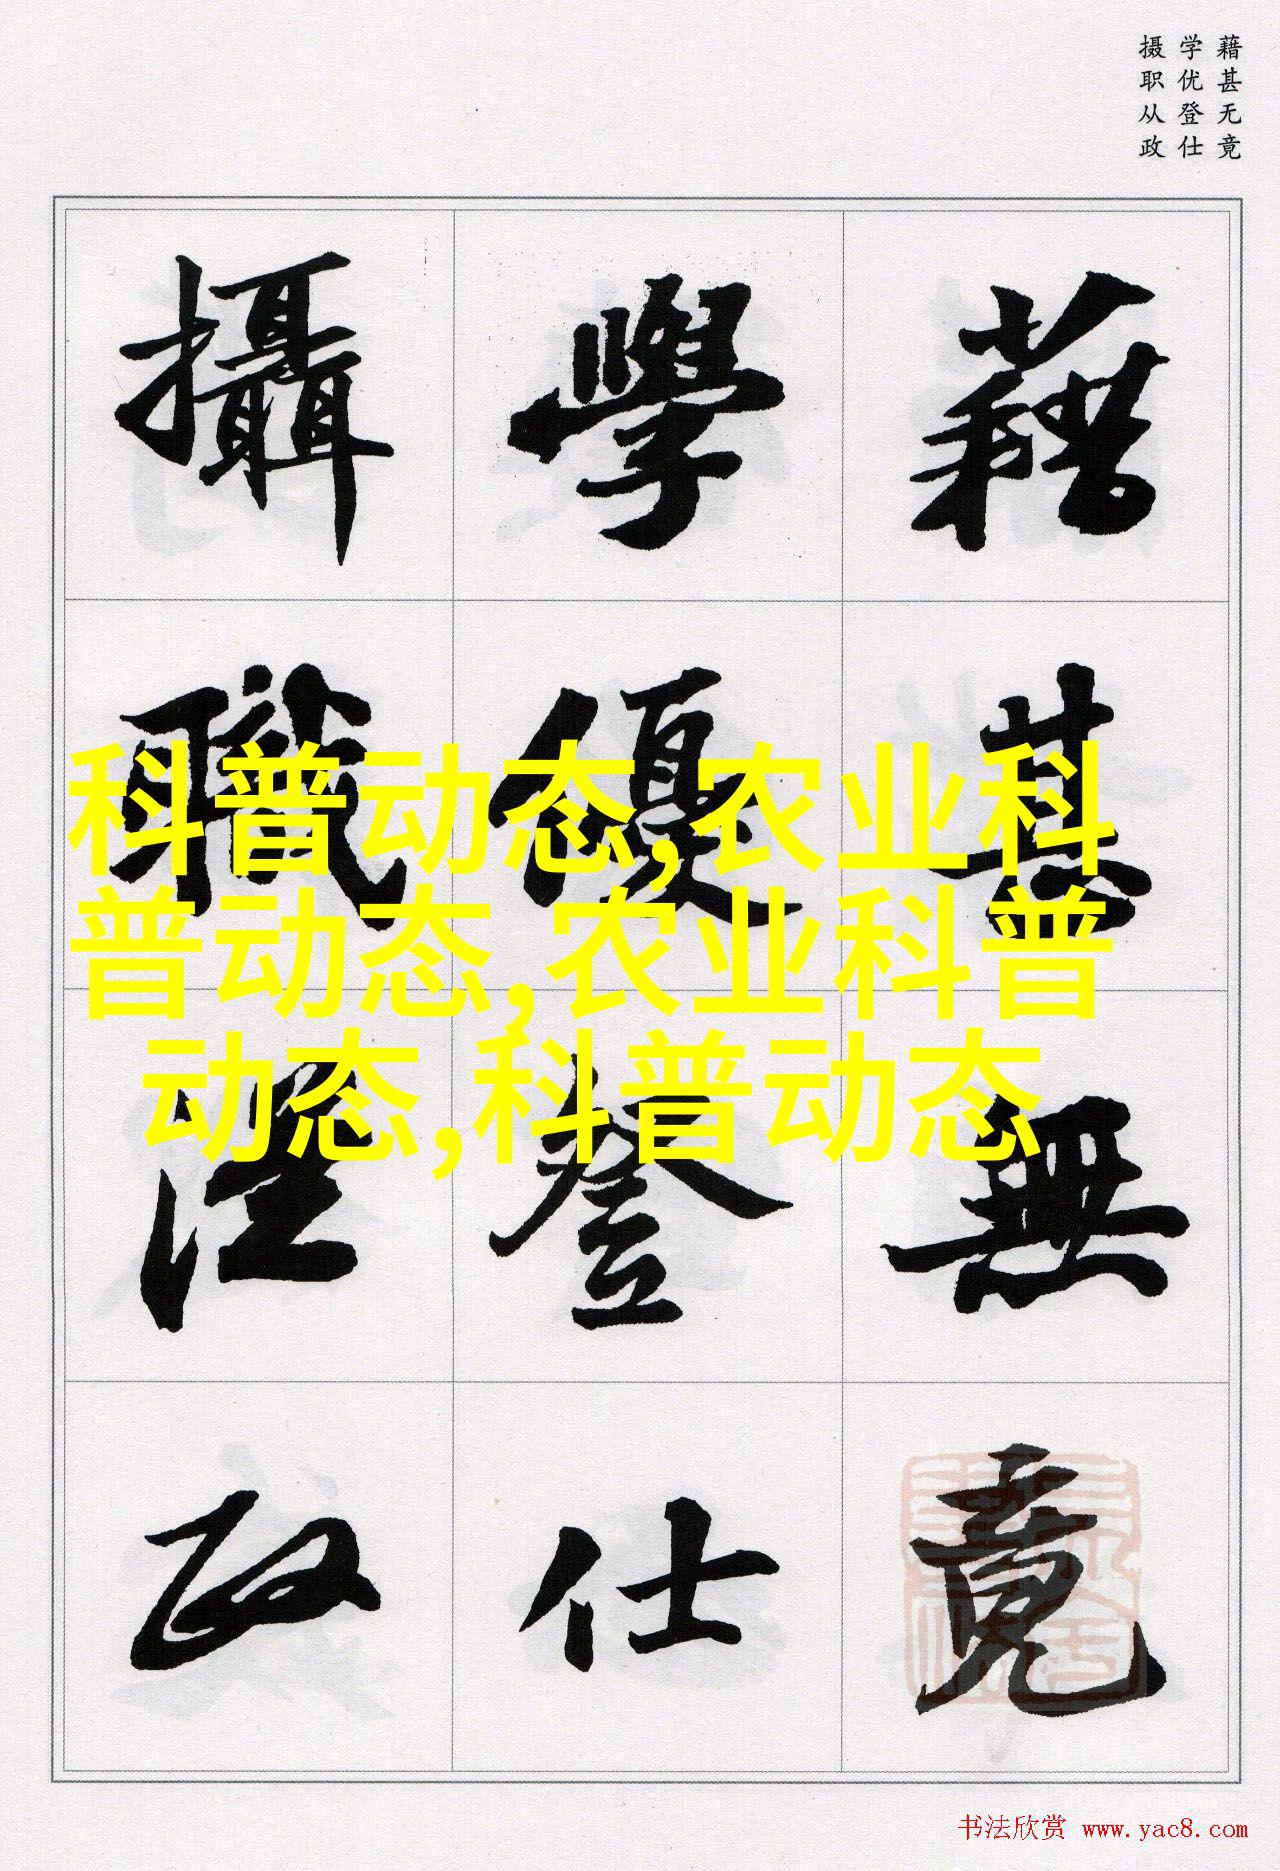 藉甚无竟
学优登仕
摄职从政
藉甚無竟
學優登仕
攝職從政
科普动态,农业科
普动态,农业科普
动态,科普动态
书法欣赏 www.yac8.com